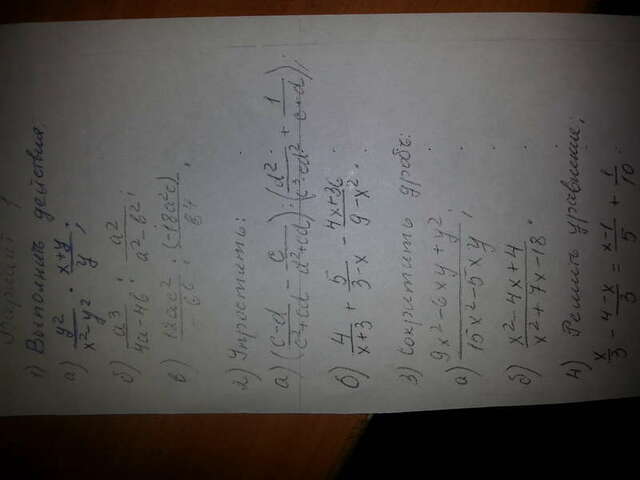 Вариант 1
1) Выполнить действия
а) y²/(x²-y²) · (x+y)/y;
б) a³/(4a-4b) : a²/(a²-b²);
в) 12ac²/ : (-18a²c)/b⁴,
2) Упростить:
а) ((c-d)/(c²+cd) - c/(d²+cd)) : (d²/(c³-cd²) + 1/(c+d));
б) 4/(x+3) + 5/(3-x) - (4x+36)/(9-x²).
3) Сократить дробь:
а) (9x²-6xy+y²)/(15x²-5xy);
б) (x²-4x+4)/(x²+7x-18).
4) Решить уравнение;
x/3 - (4-x)/3 = (x-1)/5 + 1/10.